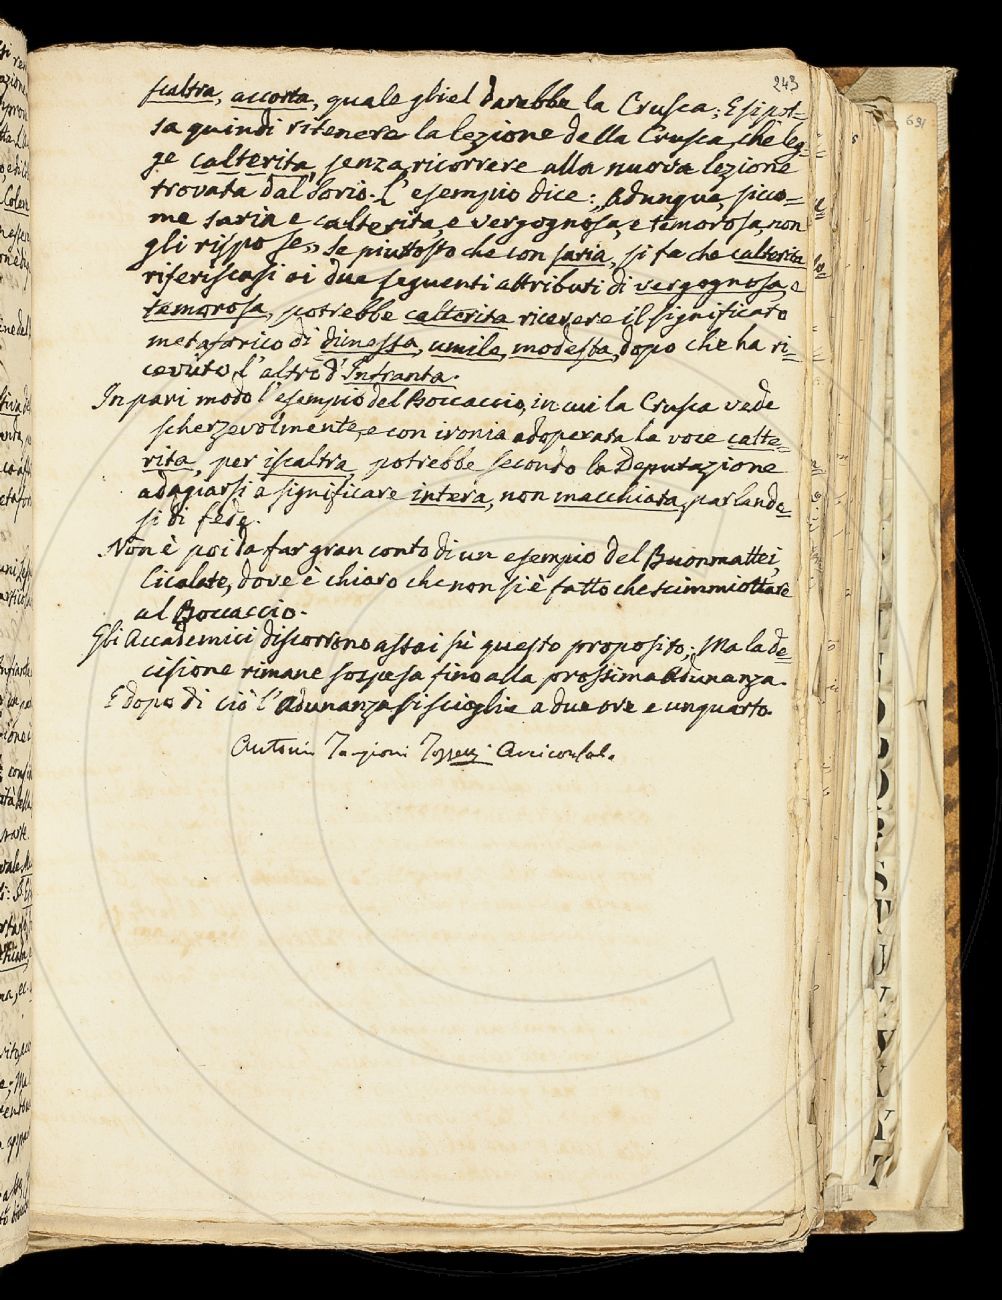 243
scaltra, accorta, quale gliel darebbe la Crusca; E si pos=
sa quindi ritenere la lezione della Crusca, che leg=
ge calterita, senza ricorrere alla nuova lezione
trovata dal Sorio. L'esempio dice: "Adunque, sicco=
me savia e calterita, e vergognosa, e temorosa, non
gli rispose" Se piuttosto che con savia, si fa che calterita
riferiscasi ai due seguenti attributi di vergognosa e
temorosa, potrebbe calterita ricevere il significato
metaforico di dimessa, umile, modesta, dopo che ha ri=
cevuto l'altro d'Infranta.
In pari modo l'esempio del Boccaccio, in cui la Crusca vede
scherzevolmente, e con ironia adoperata la voce calte=
rita, per iscaltra, potrebbe secondo la Deputazione
adagiarsi a significare intera, non macchiata, parlando=
si di fede.
Non è poi da far gran conto di un esempio del Buonmattei,
Cicalate, dove è chiaro che non si è fatto che scimmiottare
al Boccaccio.
Gli Accademici discorrono assai su questo proposito; Ma la de=
cisione rimane sospesa fino alla prossima Adunanza.
E dopo di ciò l'Adunanza si scioglie a due ore e un quarto.
Antonio Targioni Tozzetti Arciconsol.
691